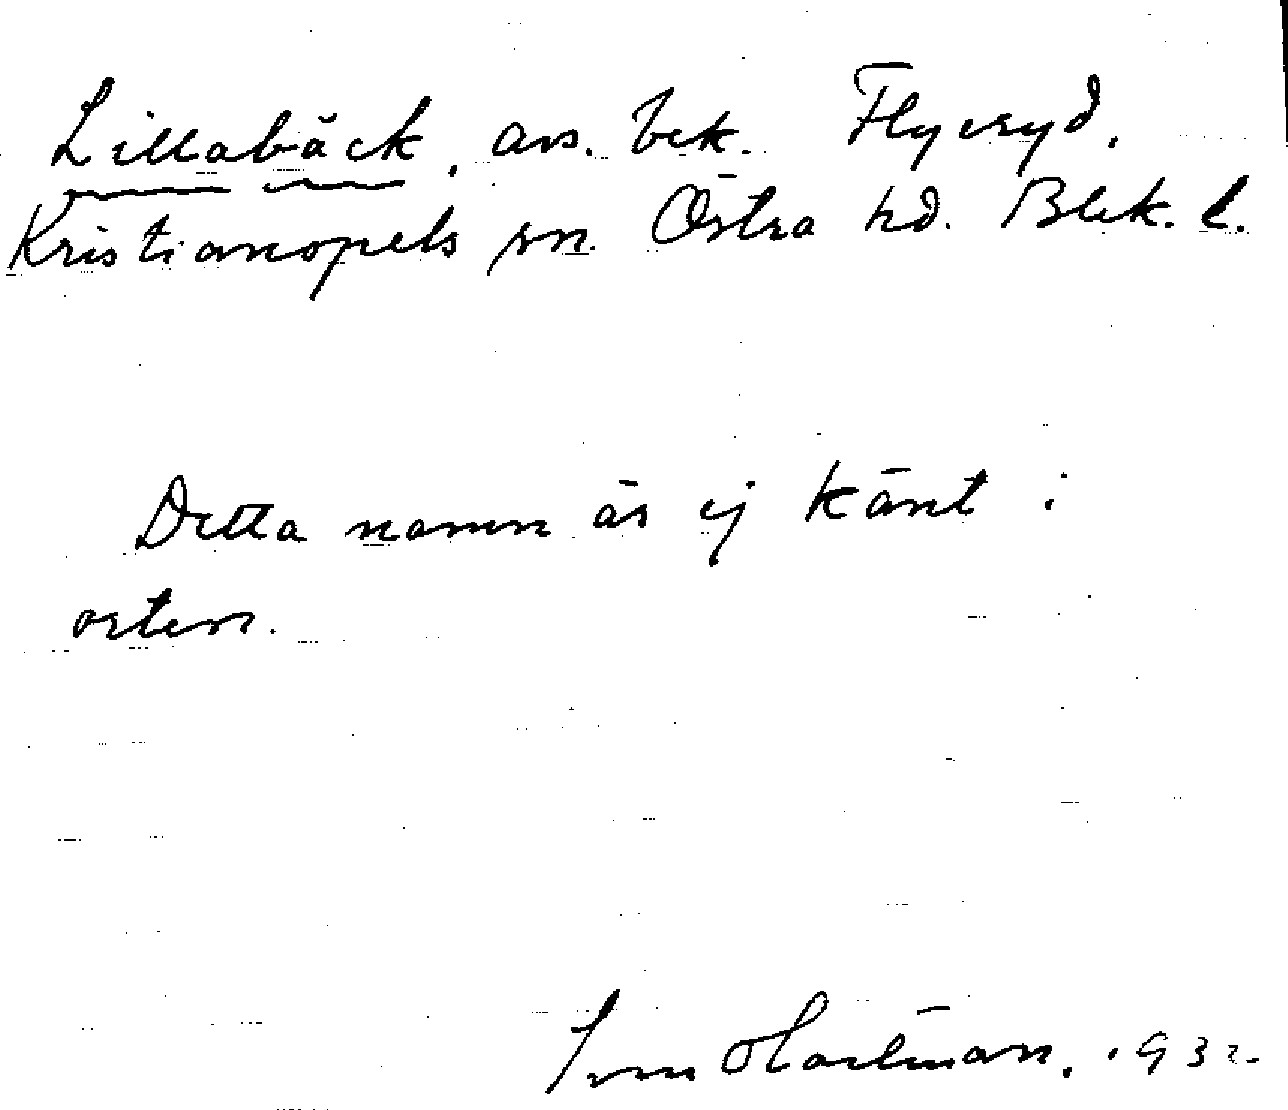 Lillabäck, avs. bek. Flyeryd,
Kristianopels sn. Östra hd. Blek. l.
Detta namn är ej känt i
orten.
1932